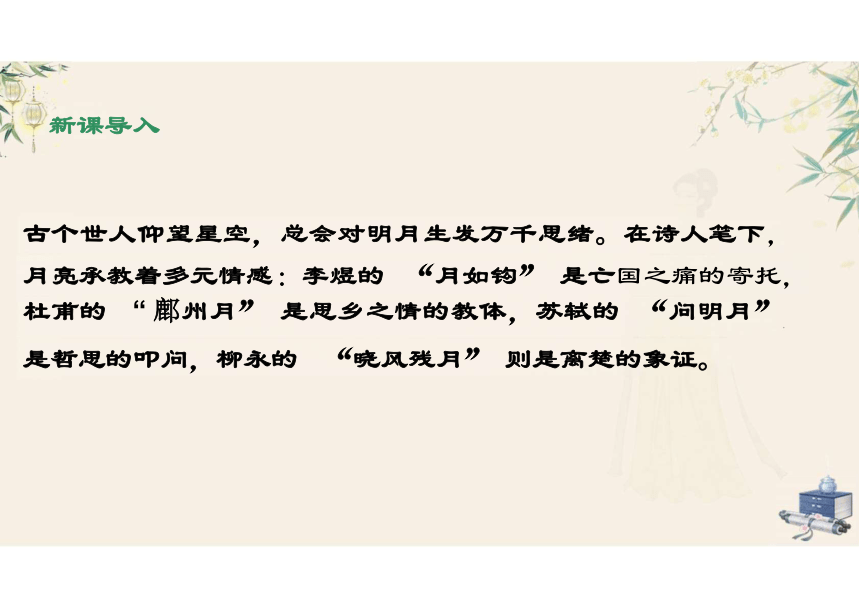 新课导入
古个世人仰望星空，总会对明月生发万千思绪。在诗人笔下，
月亮承教着多元情感：李煜的 “月如钩” 是亡国之痛的寄托，
杜甫的 “鄜州月” 是思乡之情的教体，苏轼的 “问明月”
是哲思的叩问，柳永的 “晓风残月” 则是离楚的象证。